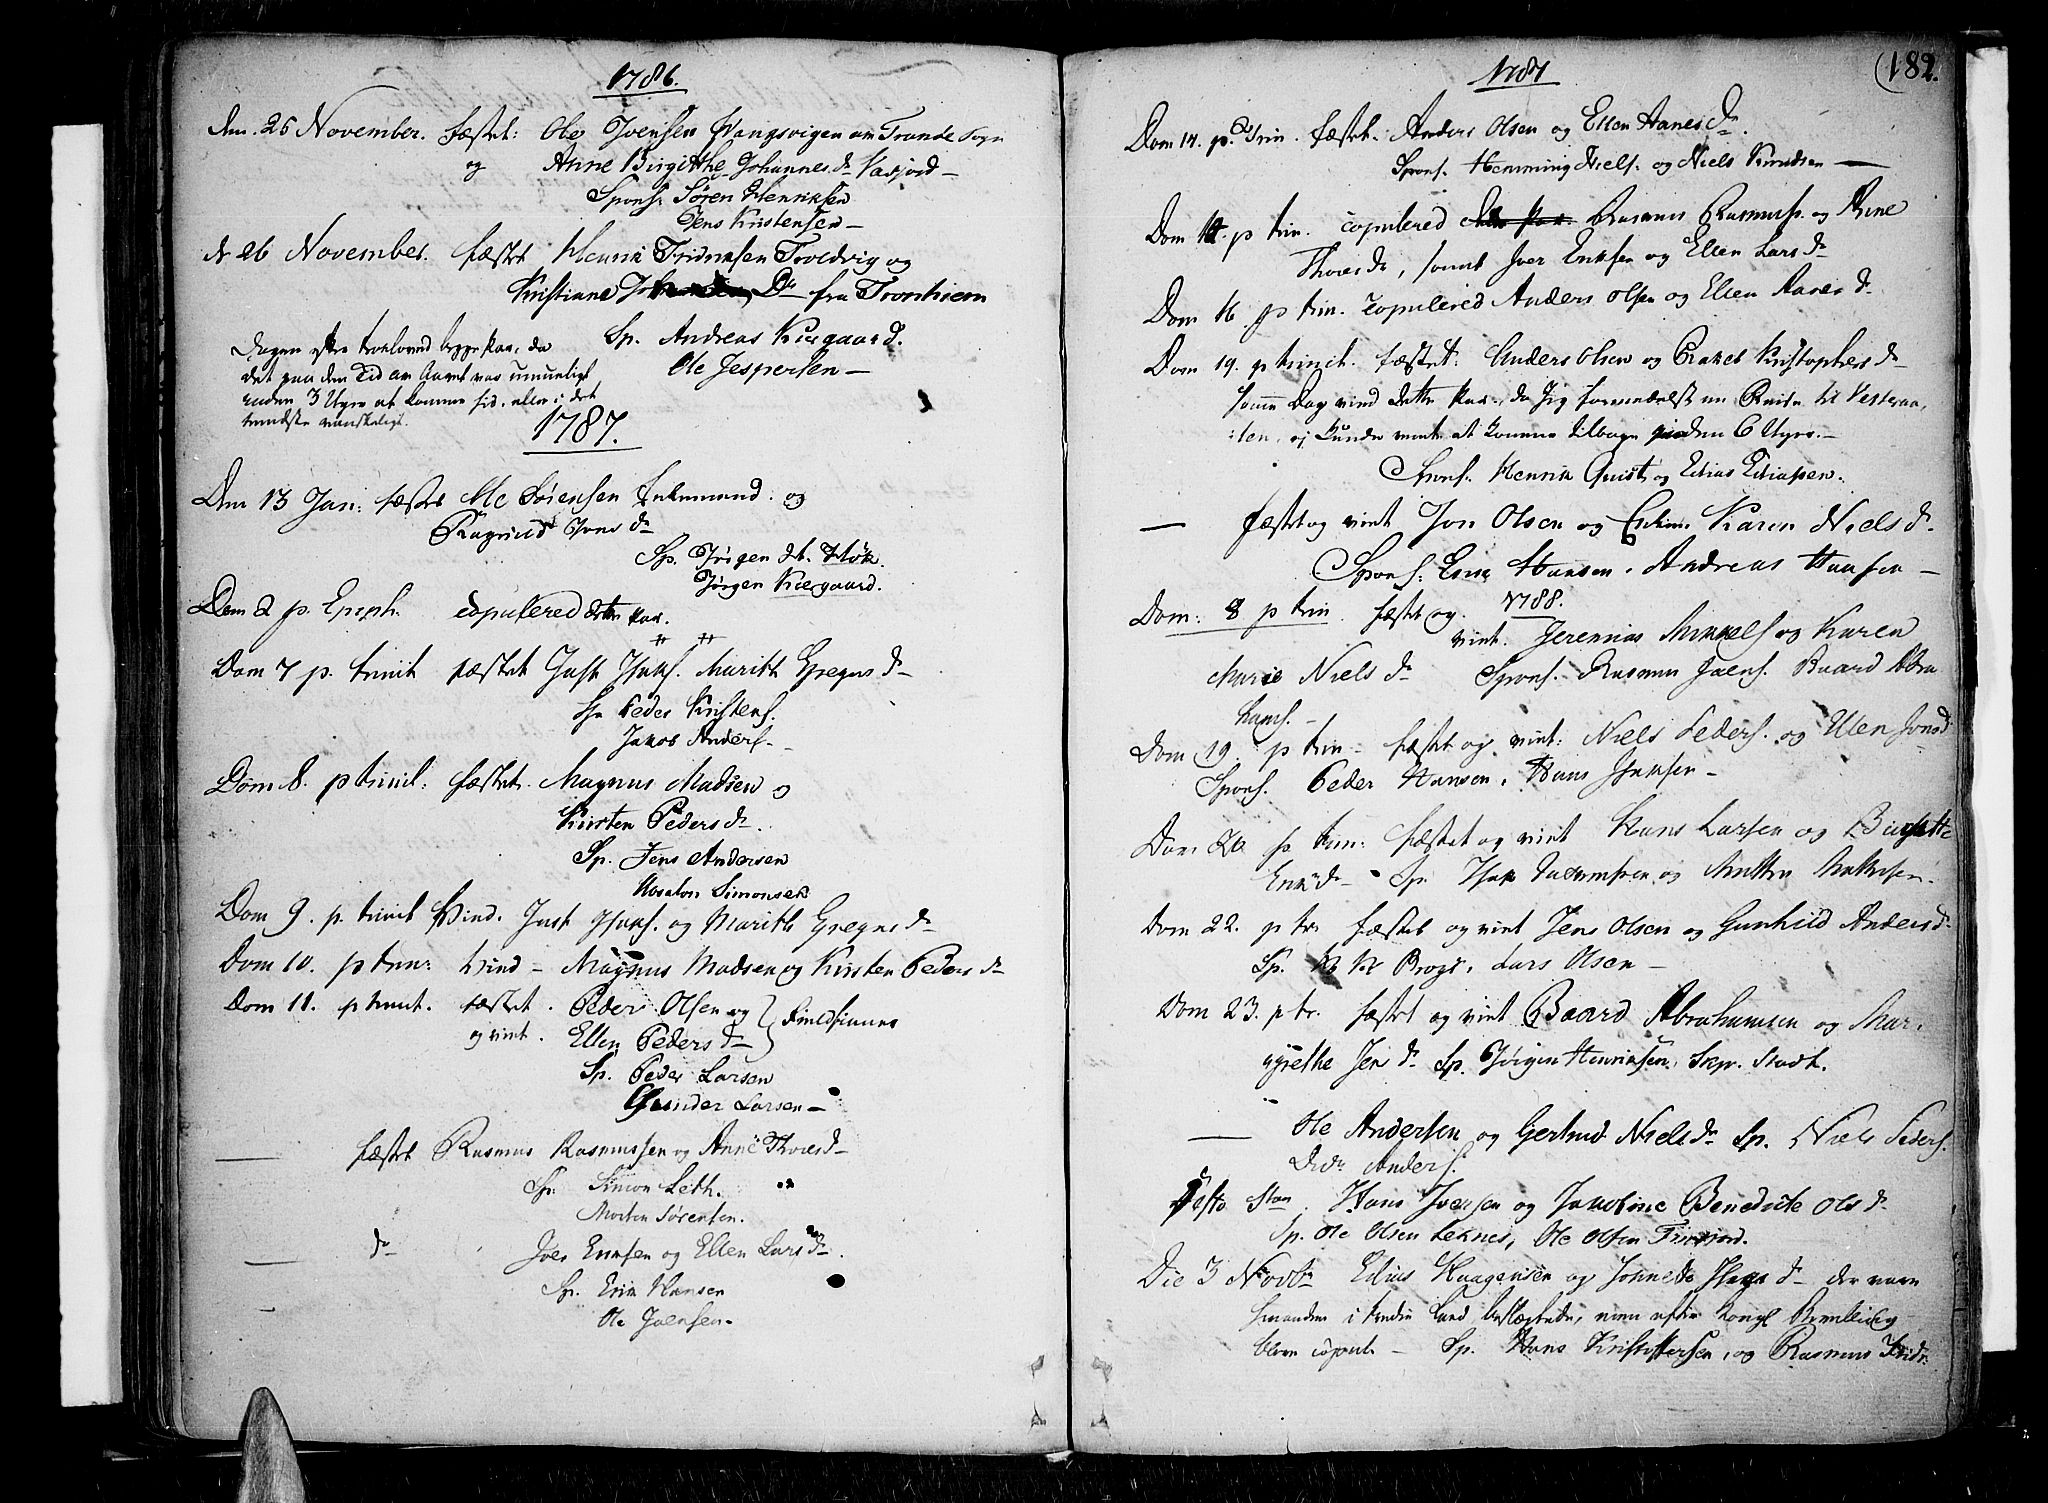 1786.
Den. 25 November. fæstet: Ole Ivensen Vangsvigen am Trande Sogn
og Anne Birgitthe Johannes dr Vasjord –
Spons: Søren Henriksen
Jens Kristensen –
d 26 November. fæstet Henrik Fridriksen Troldvig og
Kristiane Dr fra Tronhiem
Sp. Andreas Kiergaard.
Ole Jespersen –
Dagen efter trolovend begge par, da
det paa den Tid av Aaret var umueligt
inden 3 Uger at komme hid, eller i det
mindste vanskeligt.
1787.
Den 13 Jan: fæstet Ole Sørensen Enkemand. og
Ragnild Jons dr
Sp. Jørgen dt. Høk.
Jørgen Kiergaard.
Dom 2 p. Epiph. copulered dette par.
Dom 7 p. trinit fæstet Just Isaks. Marith Gregers dr
Sp Peder Kristens.
Jakob Anders. –
Dom 8. p trinit. fæstet. Magnus Madsen og
Kirsten Peders dr.
Sp. Jens Andersen
Absalon Simonsen
Dom 9. p. trinit Vind. Just Isaks. og Marith Gregers dr
Dom 10. p trin: Vind – Magnus Madsen og Kirsten Peders dr
Dom 11. p trinit. fæstet. Peder Olsen og
og viet. Ellen Peders dr } Fieldfinner
Sp. Peder Larsen
Gunder Larsen –
fæstet Rasmus Rasmussen og Anne Thores dr –
Sp. Simon Leth.
Morten Sørensen.
dr Iver Eriksen og Ellen Lars dr.
Sp. Erik Hansen
Ole Joensen –
1787
(182.
Dom 14. p. Trin. fæstet. Anders Olsen og Ellen Hanes dr.
Spons. Hemming Niels. og Niels Knudsen –
Dom 14. p trin. copulered Rasmus Rasmuss. og Ane
Thores dr, samt Iver Eriksen og Ellen Lars dr
Dom 16 p trin. copulered Anders Olsen og Ellen Hanes dr
Dom 19. p trinit. fæstet. Anders Olsen og Kristophers dr
samme Dag viet dette par, da jeg foretog en Reise til Vesteraa,
:len, ej kunde vente at komme tilbage inden 6 Uger. –
Spons. Henrik Quist og Elias Eliasen.
— fæstet og viet Jon Olsen og Enken Karen Niels dr
Spons: Erik Hansen. Andreas Hansen –
1788.
Dom: 8 p trin. fæstet og
viet. Jeremias Mikkels og Karen
Marie Niels dr Spons. Rasmus Joens. Baard Abra
hams. –
Dom 19. p trin – fæstet og viet: Niels Peders. og Ellen Jonsd
Spons. Peder Hansen. Hans Isaksen –
Dom 20 p trin: fæstet og viet Hans Larsen og Birgitte
Erik dr – Sp Isak og Mathisen.
Dom 22. p tr fæstet og viet Jens Olsen og Gunhild Anders dr
Sp. Lars Olsen –
Dom 23. p tr. fæstet og viet Baard Abrahamsen og Mar,
grethe Jens dr Sp. Jørgen Henriksen. Skp. Stadt.
Ole Andersen og Gertrud Niels dr Sp. Niels Peders.
Anders.
Hans Iversen og Jakobine Benedicte Ols dr
Sp. Ole Olsen Leknes, Ole Olsen Finjord.
Die 3 Novbr Elias Haagensen og Johnetta Isaks dr – der vare
hinanden i tredie Leed beslægtede, men efter Kongl Bevilling
bleve copul. – Sp. Hans Kristoffersen, og Rasmus Fridr.